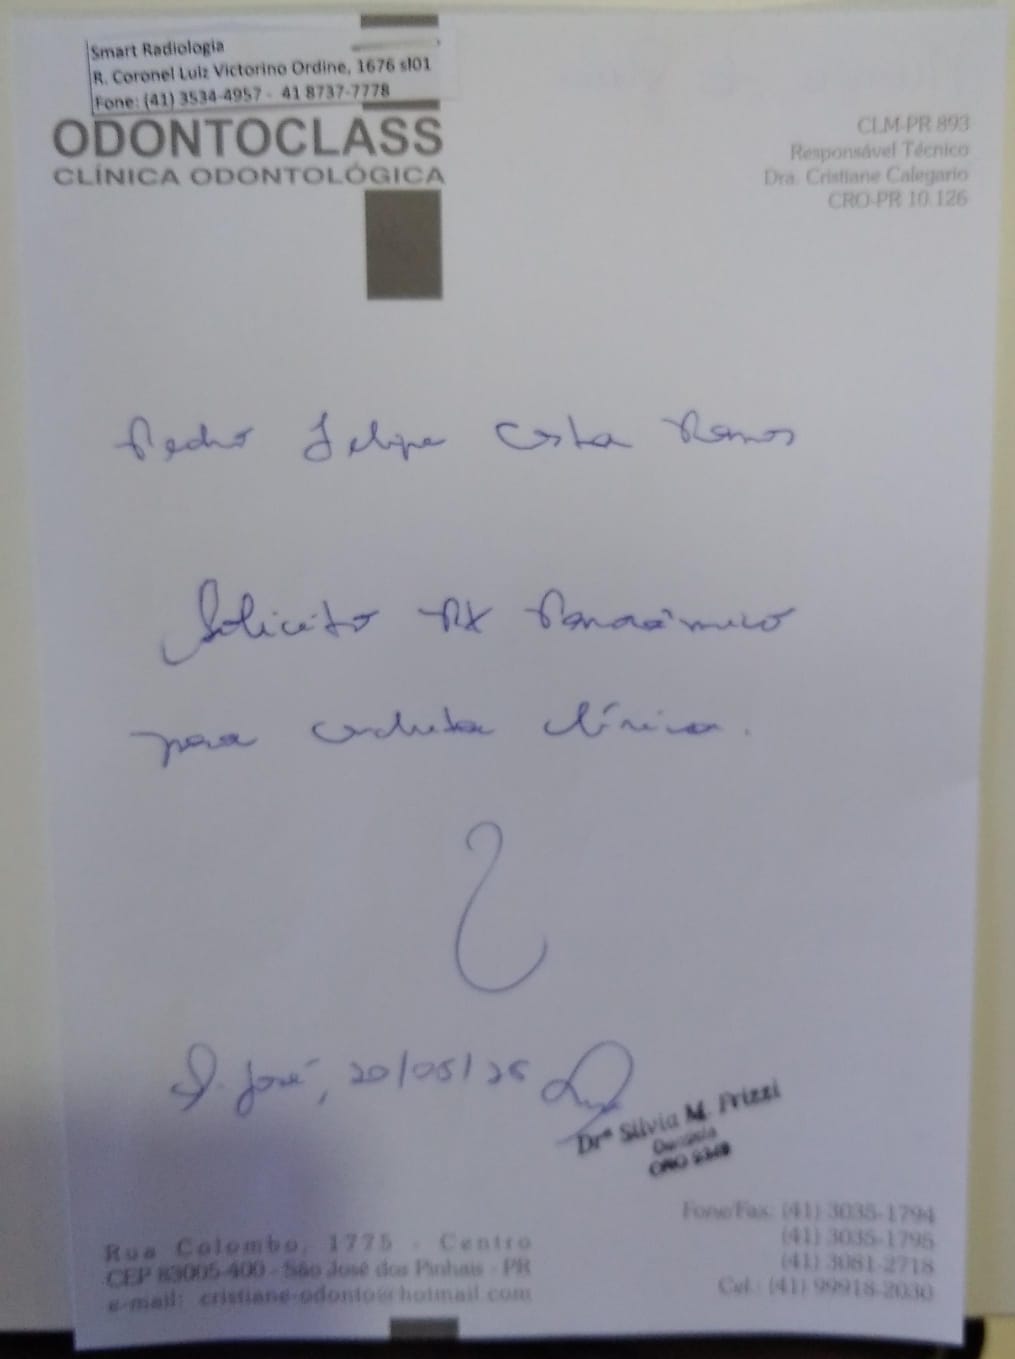 Smart Radiologia
R. Coronel Luiz Victorino Ordine, 1676 sl01
Fone: (41) 3534-4957 - 41 8737-7778
ODONTOCLASS
CLÍNICA ODONTOLÓGICA
CLM-PR 893
Responsável Técnico
Dra. Cristiane Calegario
CRO-PR 10.126
Pedro Felipe Costa Ramos
Solicito RX Panorâmico
para conduta clínica.
S. José, 20/05/25
Drª Silvia M. Frizzi
Dentista
CRO
Rua Colombo, 1775 - Centro
CEP 83005-400 - São José dos Pinhais - PR
e-mail: cristiane-odonto@hotmail.com
Fone/Fax: (41) 3035-1794
(41) 3035-1795
(41) 3081-2718
Cel.: (41) 99918-2030